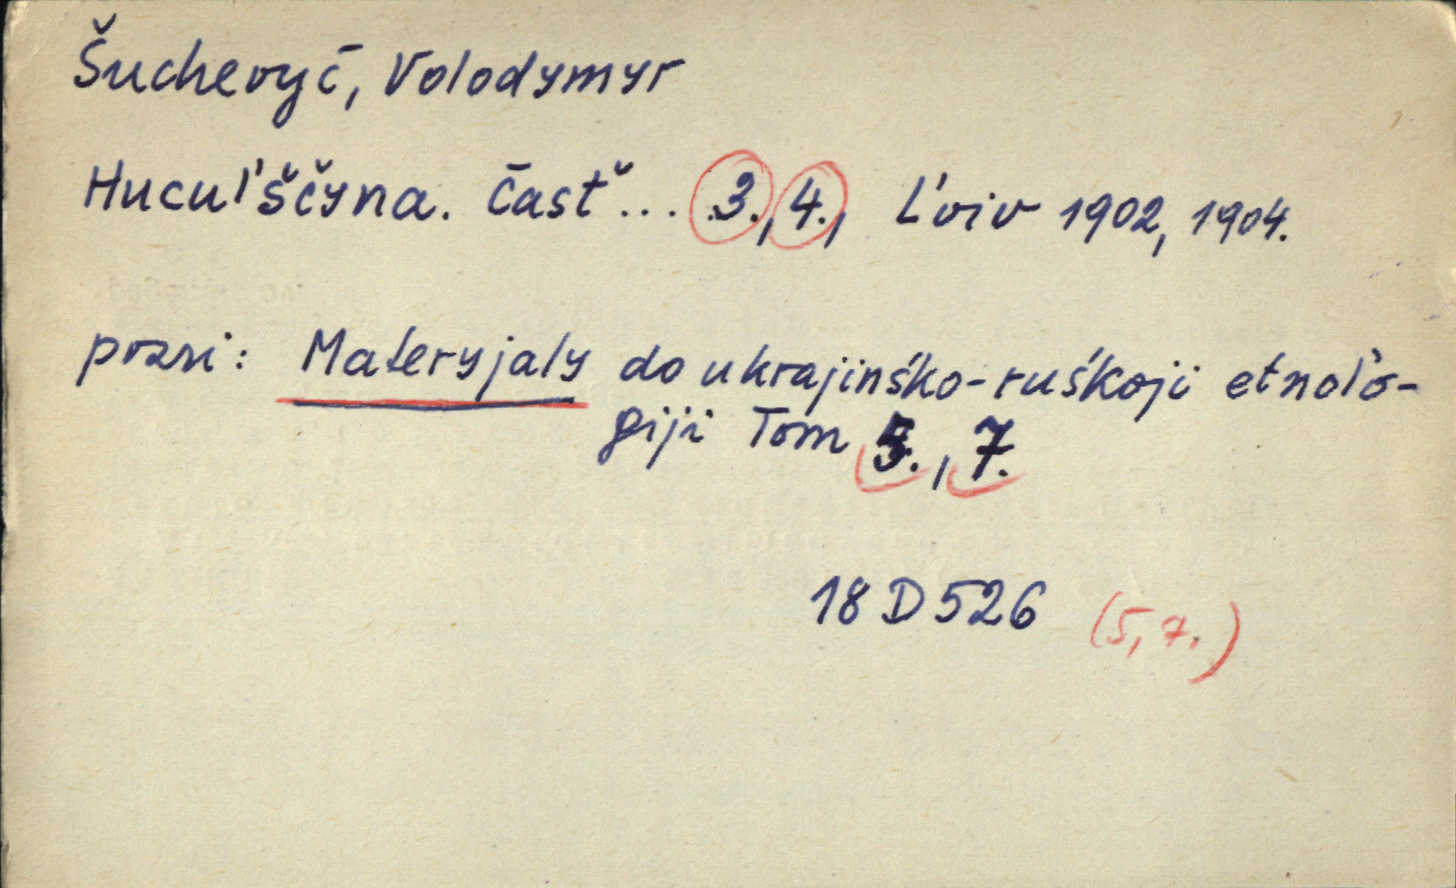 Šuchevyč, Volodymyr
Hucul'ščyna. Častˇ... 3., 4., L'viv 1902, 1904.
pozri: Materyjaly do ukrajinśko-ruśkoji etnol'o-
giji Tom 5., 7.
18 D 526 (5, 7.)